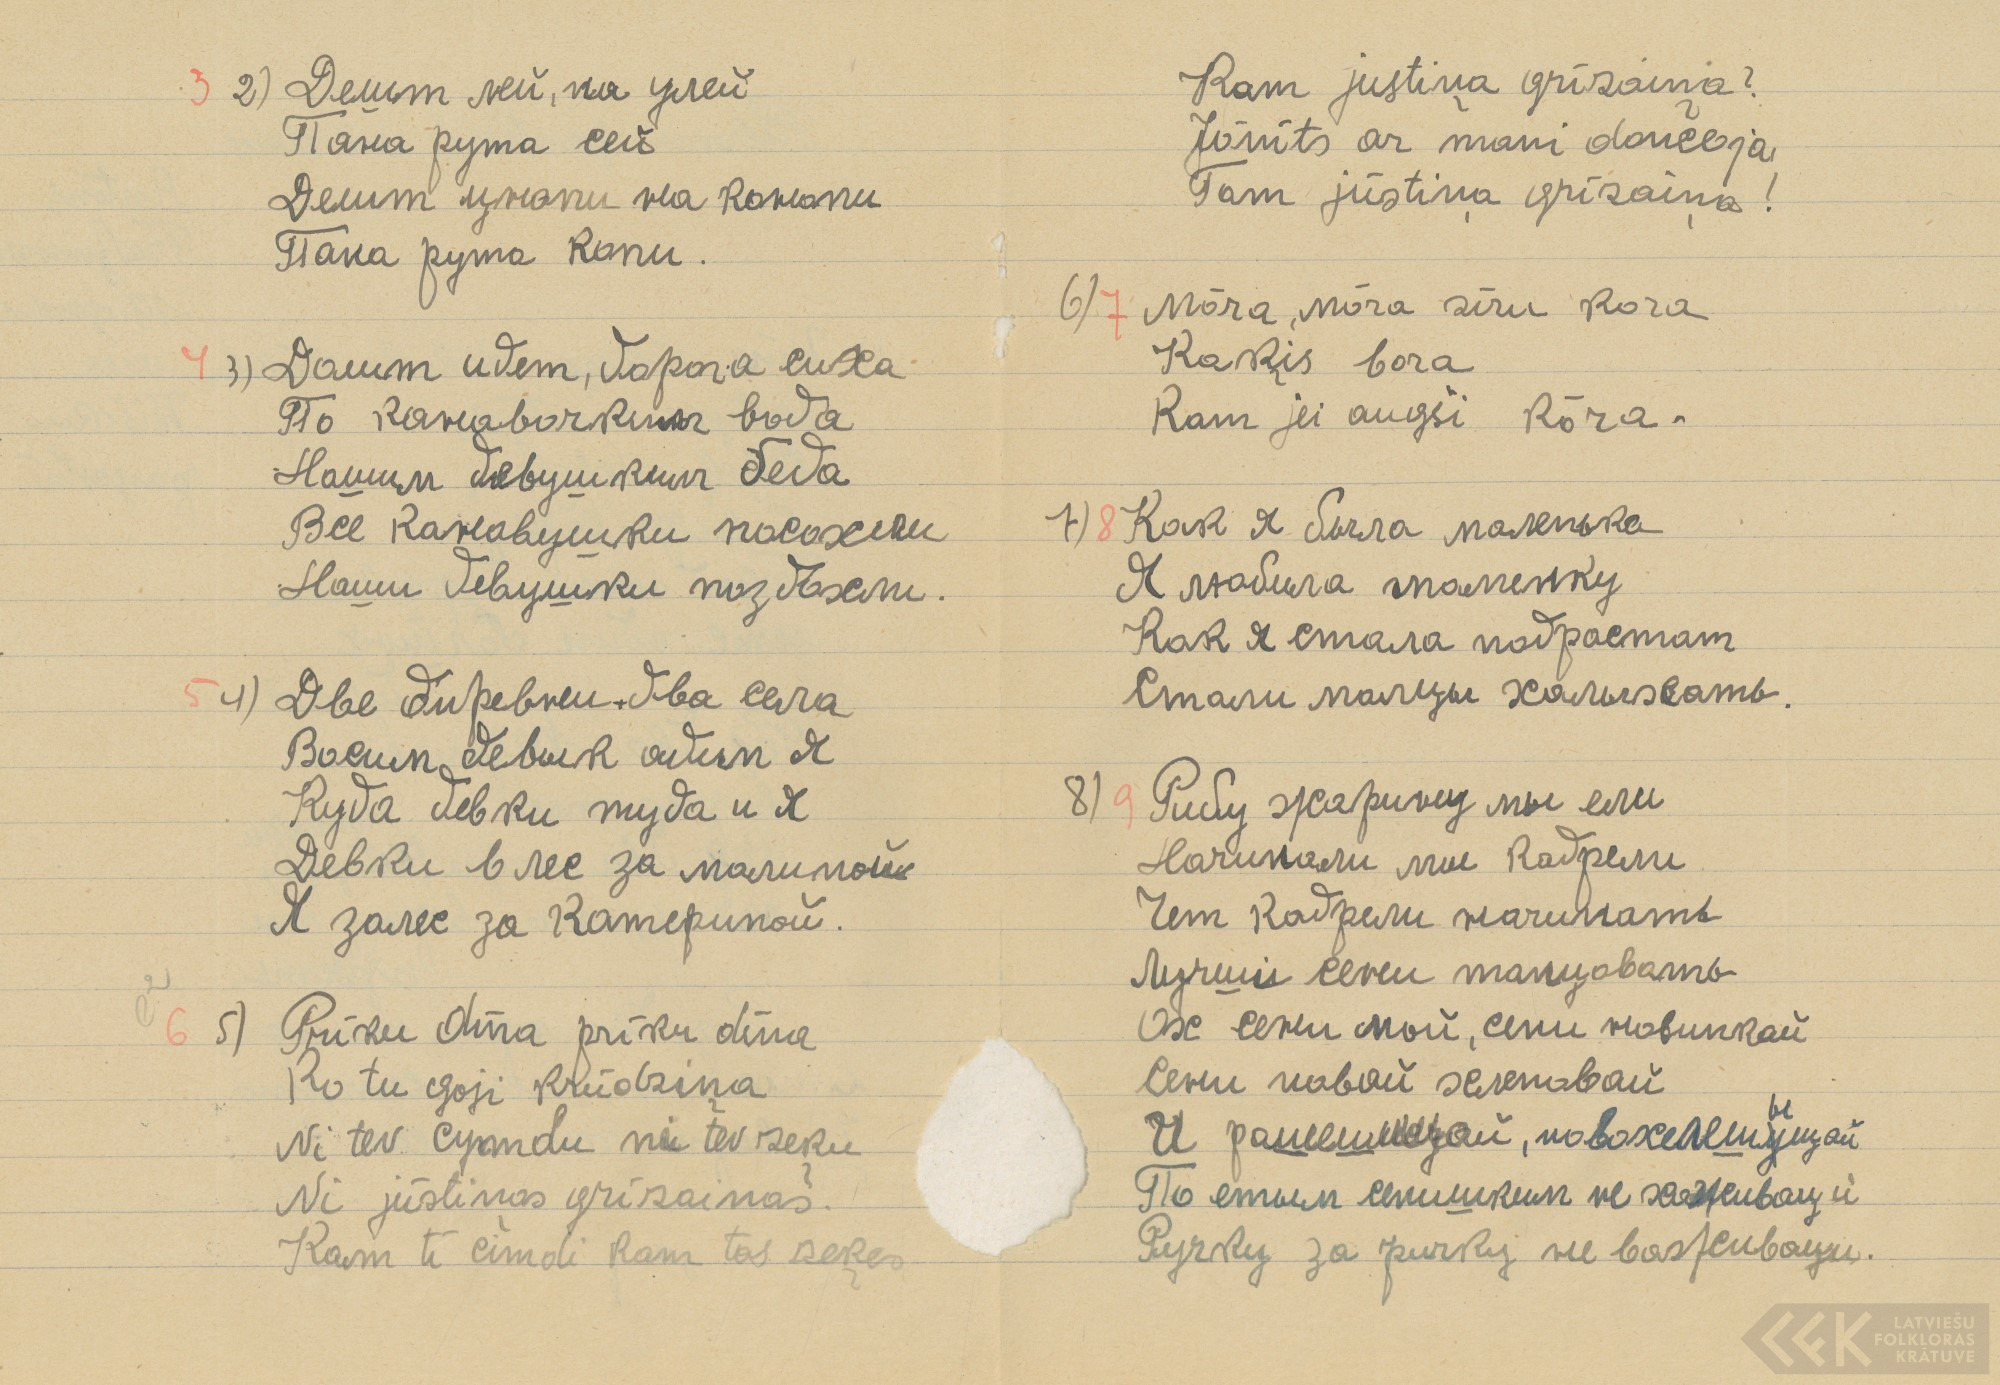 3 2) Дешт лей, на улей
Пана рута сей
Дешт унопи на конопи
Пана рута копи.
4 3) Дошт идет, дорога суха
По канавочкым вода
Нашым девушкым беда
Все канавушки посохли
Наши девушки поздохли.
5 4) Две диревни. два села
Восим девык один я
Куда девки туда и я
Девки в лес за малиной
Я залес за Катериной.
6 5) Prīku dīna prīku dīna
Ko tu goji krūdziņa
Ni tev cymdu ni tev zeku
Ni jūstiņas grīzaiņas.
Kam tī cimdi kam tas zeķes
Kam justiņa grīzaiņa?
Jōnīts ar mani dončoja
Tam jūstiņa grīzaiņa!
6) 7 Mōra, mōra sīru kora
Kaķis bora
Kam jei augši kōra.
7) 8 Как я была маленька
Я любила маменку
Как я стала подростат
Стали малцы халыхать.
8) 9 Рибу жариную мы ели
Начинали мы кадрели
Чем кадрели начинать
Лучши сени танцовать
Ох сени мой, сени новинкай
Сени новай хленовай
И
По етым сенишким не хаживаци
Ручку за ручку не важиваци.
LATVIEŠU
FOLKLORAS
KRĀTUVE